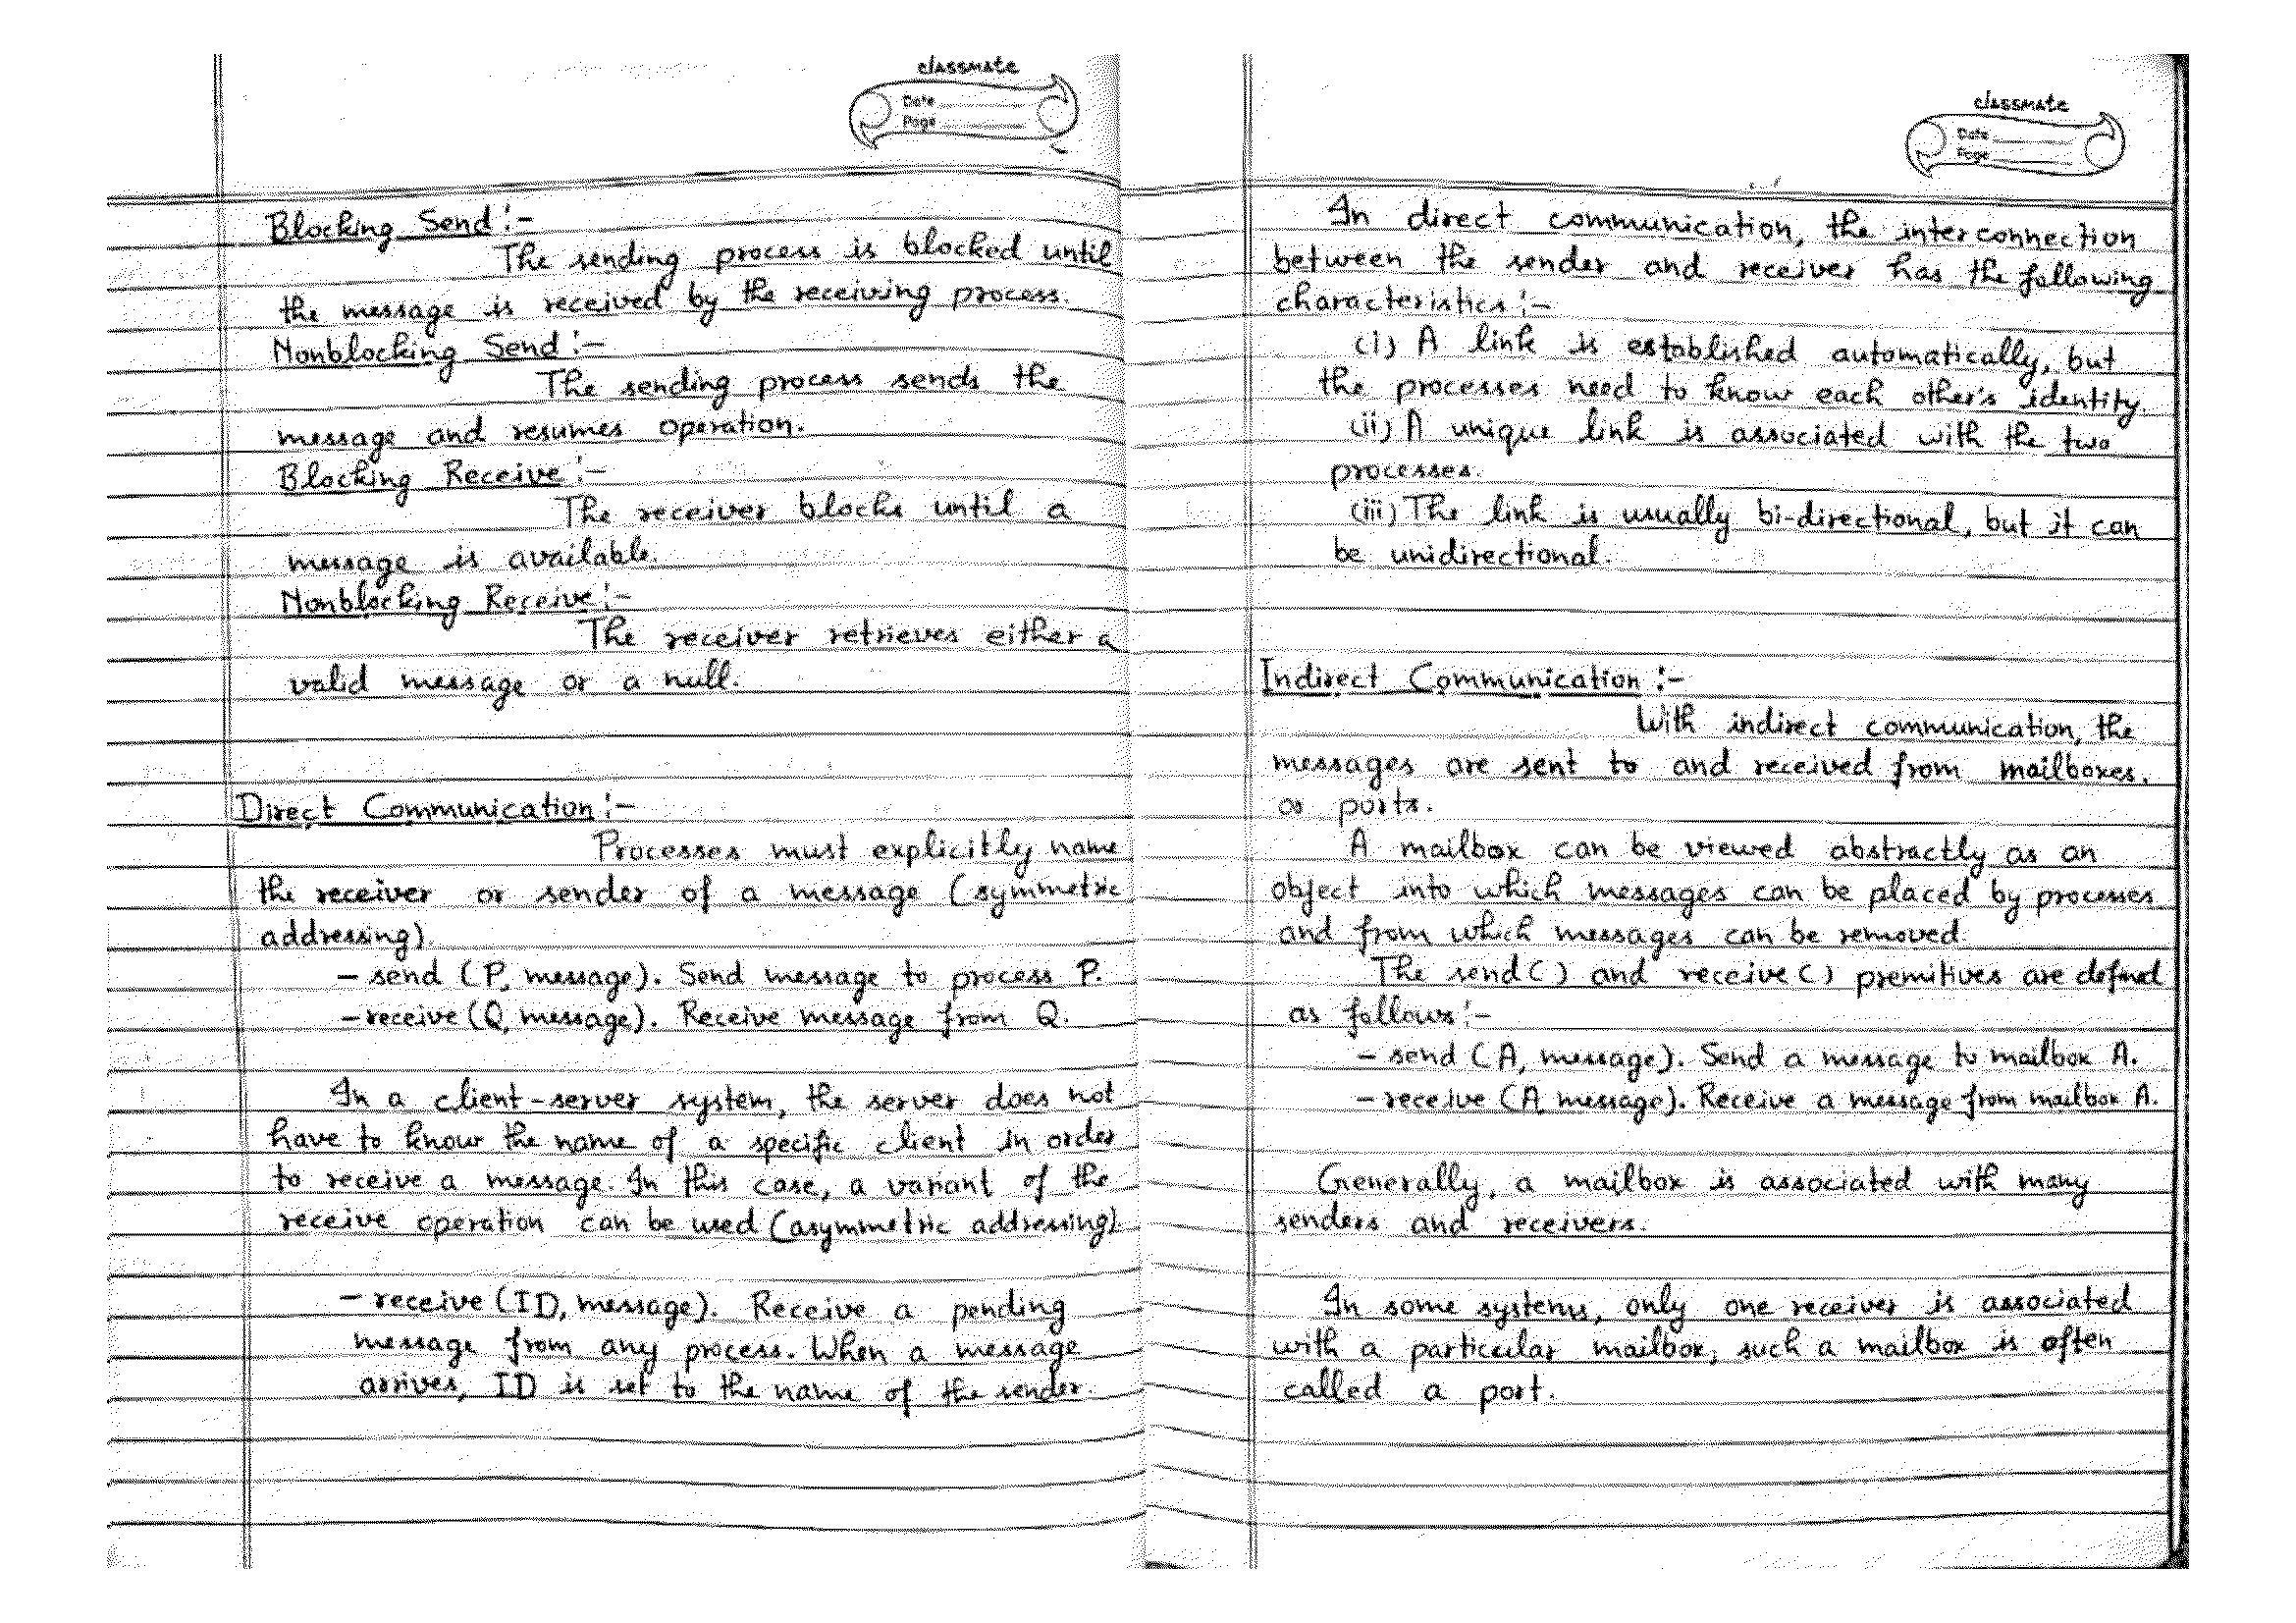 classmate
Date
Page
Blocking Send :-
The sending process is blocked until
the message is received by the receiving process.
Nonblocking Send :-
The sending process sends the
message and resumes operation.
Blocking Receive :-
The receiver blocks until a
message is available.
Nonblocking Receive :-
The receiver retrieves either a
valid message or a null.
Direct Communication :-
Processes must explicitly name
the receiver or sender of a message (symmetric
addressing).
- send (P, message). Send message to process P.
- receive (Q, message). Receive message from Q.
In a client-server system, the server does not
have to know the name of a specific client in order
to receive a message. In this case, a variant of the
receive operation can be used (asymmetric addressing)
- receive (ID, message). Receive a pending
message from any process. When a message
arrives, ID is set to the name of the sender.
classmate
Date
Page
In direct communication, the interconnection
between the sender and receiver has the following
characteristics :-
(i) A link is established automatically, but
the processes need to know each other's identity.
(ii) A unique link is associated with the two
processes.
(iii) The link is usually bi-directional, but it can
be unidirectional.
Indirect Communication :-
With indirect communication, the
messages are sent to and received from mailboxes,
or ports.
A mailbox can be viewed abstractly as an
object into which messages can be placed by processes
and from which messages can be removed.
The send() and receive() premitives are defined
as follows :-
- send (A, message). Send a message to mailbox A.
- receive (A, message). Receive a message from mailbox A.
Generally, a mailbox is associated with many
senders and receivers.
In some systems, only one receiver is associated
with a particular mailbox, such a mailbox is often
called a port.